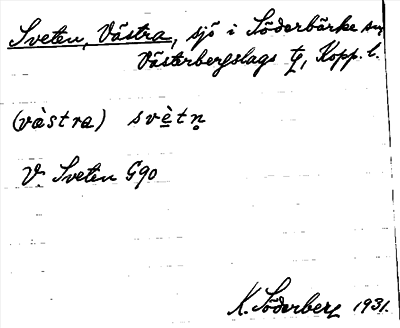 Sveten, Västra, sjö i Söderbärke sn,
Västerbergslags tg, Kopp. l.
(væ̀stra) svètn̥
V. Sveten G90
K. Söderberg 1931.